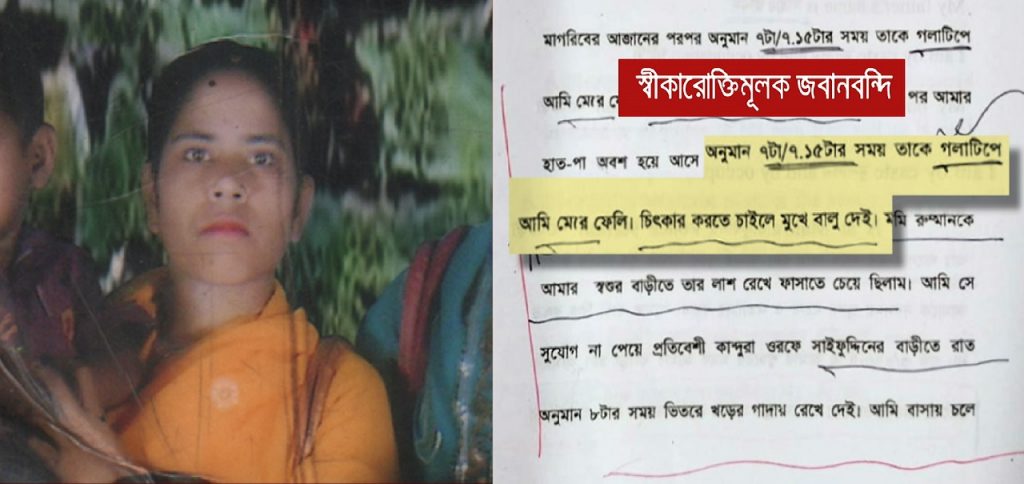 মাগরিবের আজানের পরপর অনুমান ৭টা/৭.১৫টার সময় তাকে গলাটিপে
স্বীকারোক্তিমূলক জবানবন্দি
আমি মেরে পর আমার
হাত-পা অবশ হয়ে আসে অনুমান ৭টা/৭.১৫টার সময় তাকে গলাটিপে
আমি মেরে ফেলি। চিৎকার করতে চাইলে মুখে বালু দেই। মমি রুম্মানকে
আমার শ্বশুর বাড়ীতে তার লাশ রেখে ফাসাতে চেয়ে ছিলাম। আমি সে
সুযোগ না পেয়ে প্রতিবেশী কান্দুরা ওরফে সাইফুদ্দিনের বাড়ীতে রাত
অনুমান ৮টার সময় ভিতরে খড়ের গাদায় রেখে দেই। আমি বাসায় চলে